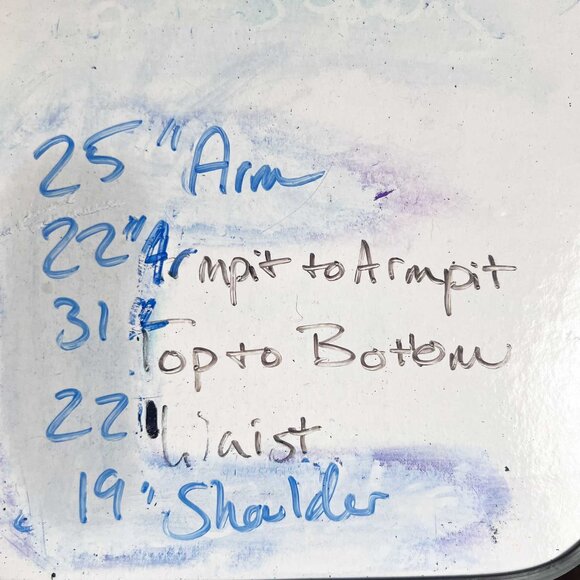 25" Arm
22" Armpit to Armpit
31" Top to Bottom
22" Waist
19" Shoulder